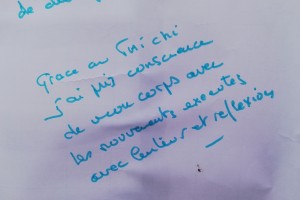 de
Grace au Taïchi
j'ai pris conscience
de mon corps avec
les mouvements executés
avec lenteur et reflexion